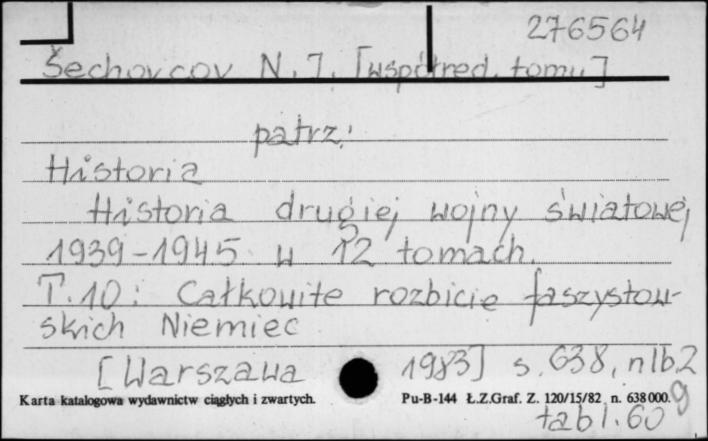 276564
Šechovcov N. I. [współred. tomu]
patrz:
Historia
Historia drugiej wojny światowej
1939-1945 w 12 tomach.
T.10: Całkowite rozbicie faszystow-
skich Niemiec
[Warszawa 1983] s. 638, nlb.2
Karta katalogowa wydawnictw ciągłych i zwartych. Pu-B-144 Ł.Z.Graf. Z. 120/15/82 n. 638000.
tabl. 60